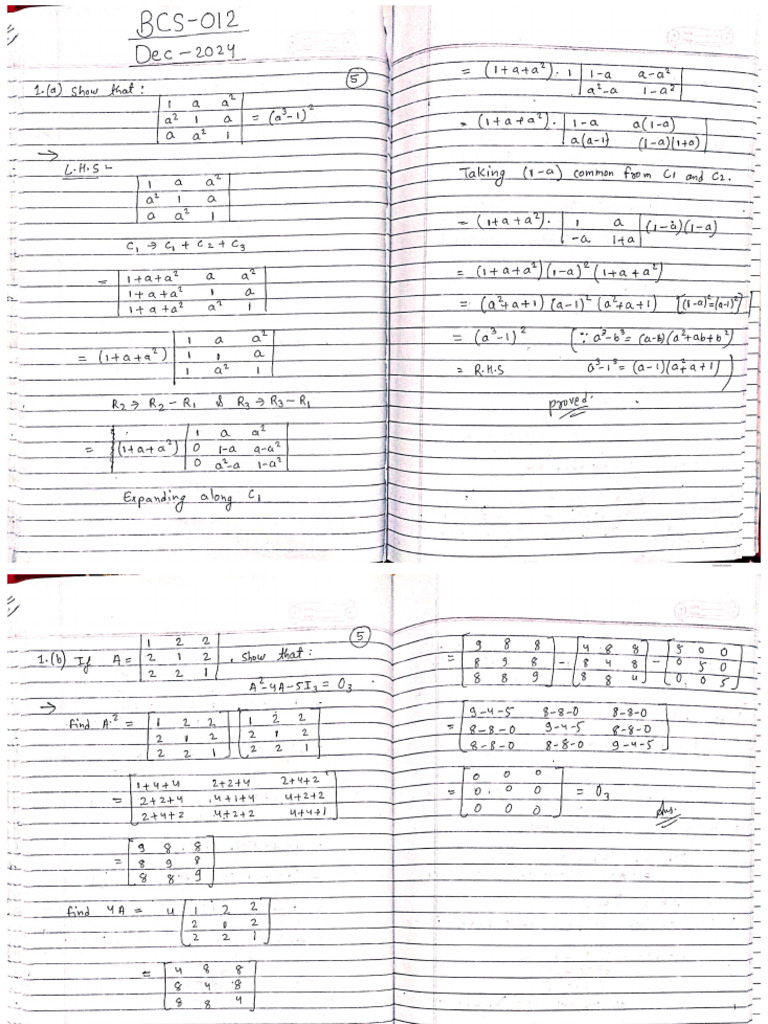 BCS-012
Dec-2024
1.(a) Show that: (5)
| 1 a a² |
| a² 1 a | = (a³-1)²
| a a² 1 |
→ L.H.S-
| 1 a a² |
| a² 1 a |
| a a² 1 |
C₁ → C₁ + C₂ + C₃
= | 1+a+a² a a² |
| 1+a+a² 1 a |
| 1+a+a² a² 1 |
= (1+a+a²) | 1 a a² |
| 1 1 a |
| 1 a² 1 |
R₂ → R₂ - R₁ & R₃ → R₃ - R₁
= (1+a+a²) | 1 a a² |
| 0 1-a a-a² |
| 0 a²-a 1-a² |
Expanding along C₁
= (1+a+a²). 1 | 1-a a-a² |
| a²-a 1-a² |
= (1+a+a²). | 1-a a(1-a) |
| a(a-1) (1-a)(1+a) |
Taking (1-a) common from C₁ and C₂.
= (1+a+a²). | 1 a | (1-a)(1-a)
| -a 1+a |
= (1+a+a²)(1-a)²(1+a+a²)
= (a²+a+1)(a-1)²(a²+a+1) [(1-a)²=(a-1)²]
= (a³-1)² (∵ a³-b³=(a-b)(a²+ab+b²)
= R.H.S a³-1³=(a-1)(a²+a+1))
proved.
1.(b) If A = | 1 2 2 | (5)
| 2 1 2 | , Show that:
| 2 2 1 |
A²-4A-5I₃ = O₃
→
find A² = [ 1 2 2 ] [ 1 2 2 ]
[ 2 1 2 ] [ 2 1 2 ]
[ 2 2 1 ] [ 2 2 1 ]
= [ 1+4+4 2+2+4 2+4+2 ]
[ 2+2+4 4+1+4 4+2+2 ]
[ 2+4+2 4+2+2 4+4+1 ]
= [ 9 8 8 ]
[ 8 9 8 ]
[ 8 8 9 ]
find 4A = 4 [ 1 2 2 ]
[ 2 1 2 ]
[ 2 2 1 ]
= [ 4 8 8 ]
[ 8 4 8 ]
[ 8 8 4 ]
= [ 9 8 8 ] - [ 4 8 8 ] - [ 5 0 0 ]
[ 8 9 8 ] [ 8 4 8 ] [ 0 5 0 ]
[ 8 8 9 ] [ 8 8 4 ] [ 0 0 5 ]
= [ 9-4-5 8-8-0 8-8-0 ]
[ 8-8-0 9-4-5 8-8-0 ]
[ 8-8-0 8-8-0 9-4-5 ]
= [ 0 0 0 ]
[ 0 0 0 ] = O₃
[ 0 0 0 ] Ans.